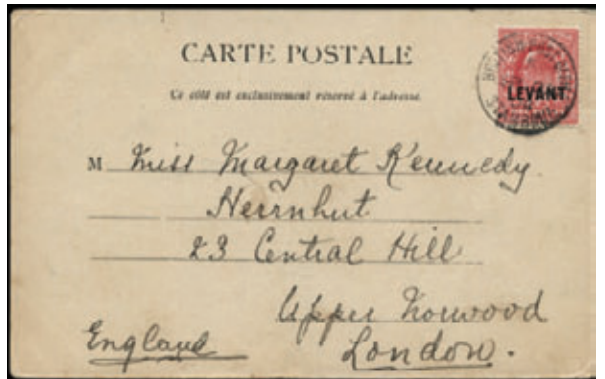 CARTE POSTALE
Ce côté est exclusivement réservé à l'adresse.
LEVANT
M Miss Margaret Kennedy
Herrnhut
23 Central Hill
Upper Norwood
England London.